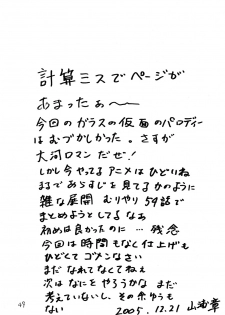 計算ミスでページが
あまったぁ〜
今回のガラスの仮面のパロディー
はむづかしかった。さすが
大河ロマンだぜ!
しかし今やってるアニメはひどいね
まるであらすじを見てるかのように
雑な展開 むりやり54話で
まとめようとしてるなあ
初めは良かったのに… 残念
今回は時間もなく仕上げも
ひどくてゴメンなさい
まだなれてなくてねぇ
次はなにをやろうかな まだ
考えていないし、その余ゆうも
ない 2005.12.21
49